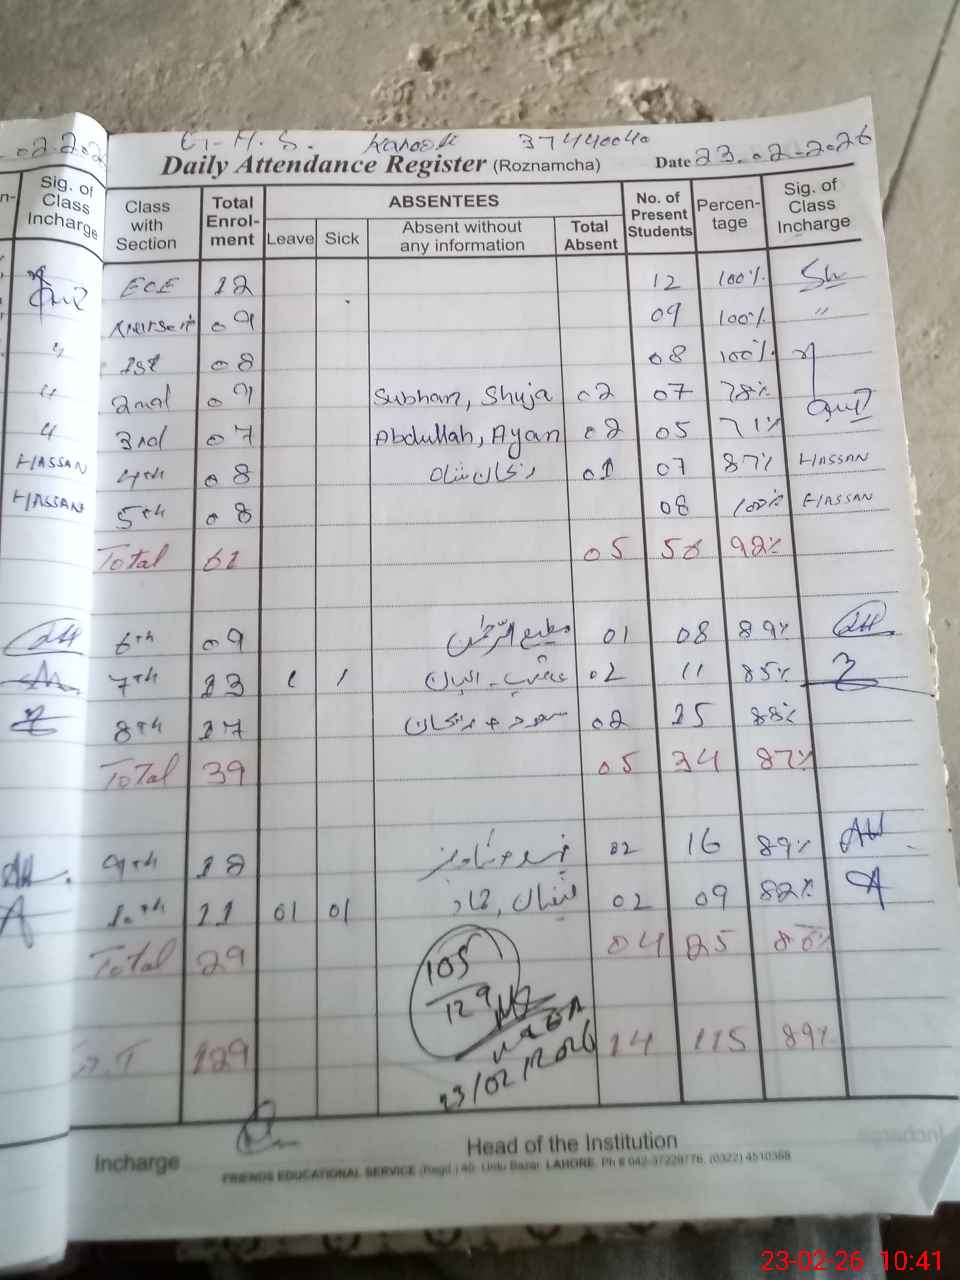 G.H.S. Kanook 37440040
Daily Attendance Register (Roznamcha) Date 23.02.2026
.02.202
Sig. of Class Incharge
Class with Section Total Enrolment ABSENTEES No. of Present Students Percentage Sig. of Class Incharge
Leave Sick Absent without any information Total Absent
ECE 12 12 100% Sh
09 09 100% "
1st 08 08 100%
2nd 09 Subhan, Shuja 02 07 78%
3rd 07 Abdullah, Ayan 02 05 71%
HASSAN 4th 08 01 07 87% HASSAN
HASSAN 5th 08 08 100% HASSAN
Total 61 05 56 92%
6th 09 مطیع الرحمٰن 01 08 89%
7th 13 1 1 02 11 85%
8th 17 02 15 88%
Total 39 05 34 87%
9th 18 02 16 89% AH
10th 11 01 01 02 09 82% A
Total 29 04 25 86%
105
129
MEA
G.T 129 14 115 89%
23/02/2026
Incharge Head of the Institution
FRIENDS EDUCATIONAL SERVICE (Regd.) 40- Urdu Bazar LAHORE. Ph # 042-37229776, (0322) 4510368
23-02-26 10:41